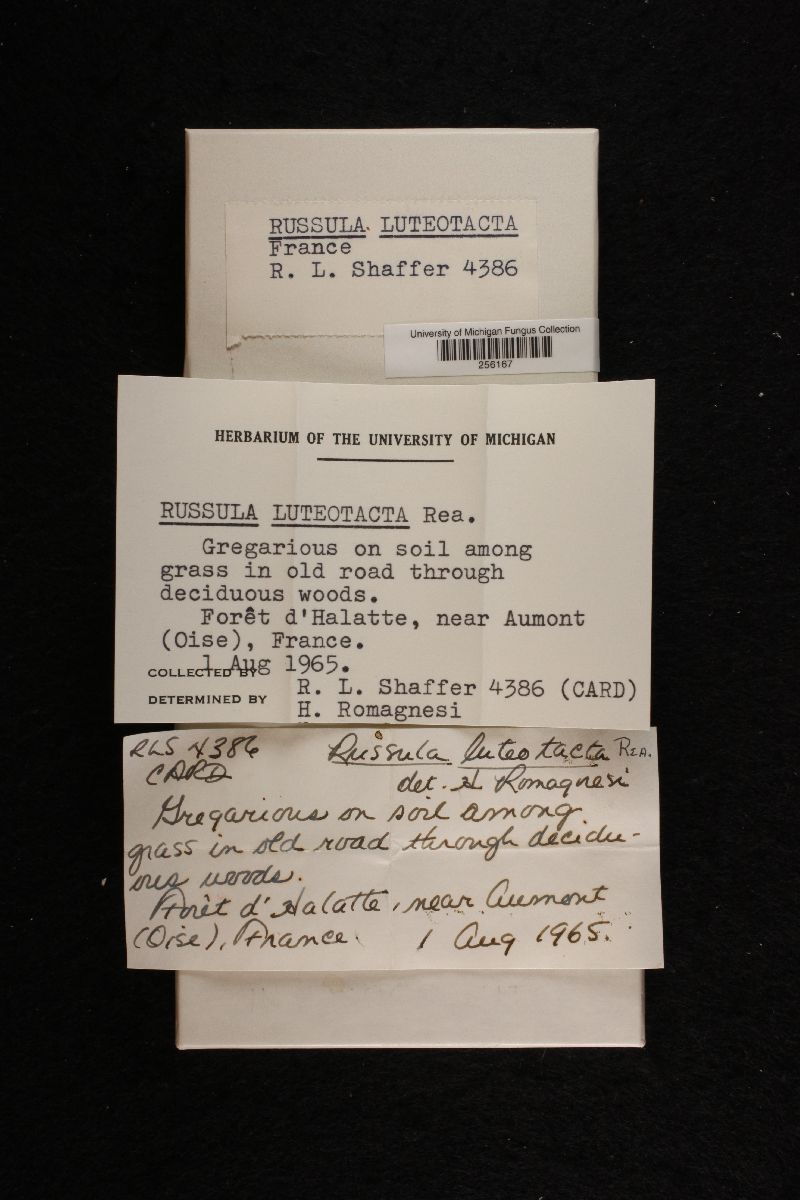 RUSSULA LUTEOTACTA
France
R. L. Shaffer 4386
University of Michigan Fungus Collection
256167
HERBARIUM OF THE UNIVERSITY OF MICHIGAN
RUSSULA LUTEOTACTA Rea.
Gregarious on soil among
grass in old road through
deciduous woods.
Forêt d'Halatte, near Aumont
(Oise), France.
1 Aug 1965.
COLLECTED BY R. L. Shaffer 4386 (CARD)
DETERMINED BY H. Romagnesi
RLS 4386 Russula luteotacta REA.
CARD det. H Romagnesi
Gregarious on soil among
grass in old road through decidu-
ous woods.
Forêt d'Halatte, near Aumont
(Oise), France. 1 Aug 1965.